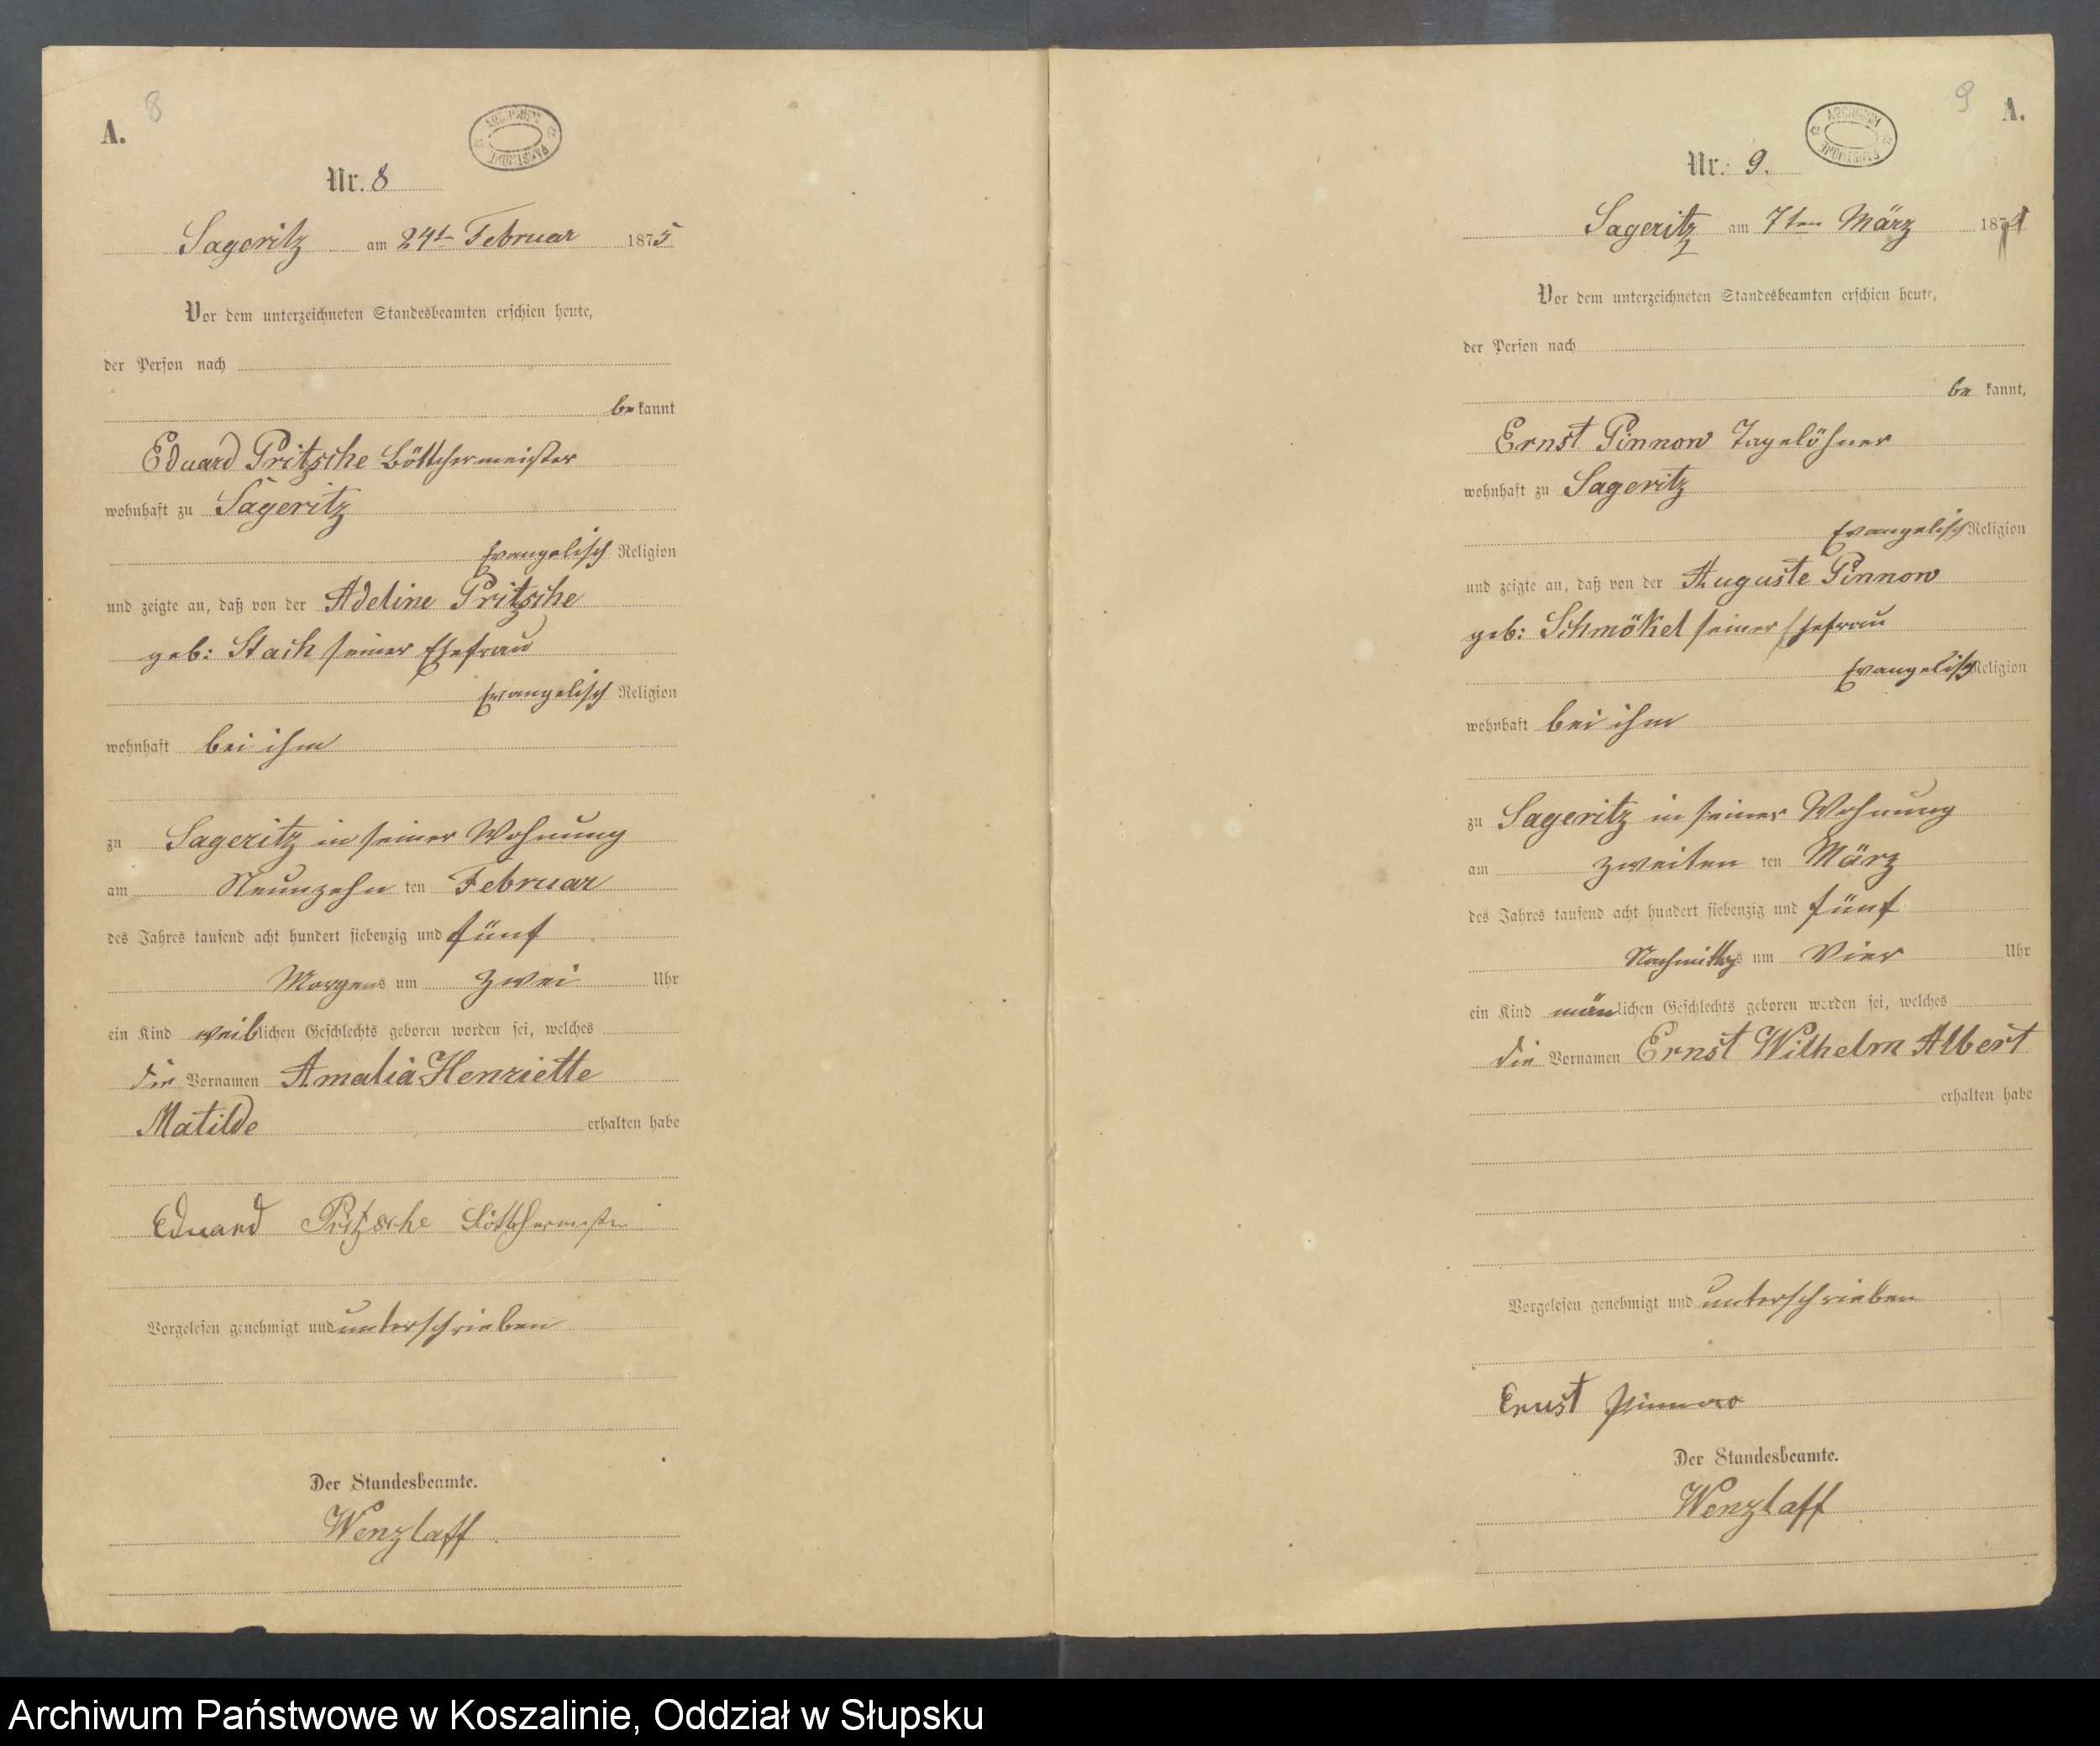 8
A.
ARCHIWUM PAŃSTWOWE
Nr. 8
Sageritz am 24t Februar 1875
Vor dem unterzeichneten Standesbeamten erschien heute,
der Person nach
bekannt
Eduard Pritzsche Böttchermeister
wohnhaft zu Sageritz
Evangelisch Religion
und zeigte an, daß von der Adeline Pritzsche
geb: Stach seiner Ehefrau
Evangelisch Religion
wohnhaft bei ihm
zu Sageritz in seiner Wohnung
am Neunzehn ten Februar
des Jahres tausend acht hundert siebenzig und fünf
Morgens um zwei Uhr
ein Kind weiblichen Geschlechts geboren worden sei, welches
die Vornamen Amalia Henriette
Matilde erhalten habe
Eduard Pritzsche Böttchermeister
Vorgelesen genehmigt und unterschrieben
Der Standesbeamte.
Wenzlaff
9
A.
ARCHIWUM PAŃSTWOWE
Nr. 9.
Sageritz am 7ten März 187
Vor dem unterzeichneten Standesbeamten erschien heute,
der Person nach
be kannt,
Ernst Pinnow Tagelöhner
wohnhaft zu Sageritz
Evangelisch Religion
und zeigte an, daß von der Auguste Pinnow
geb: Schmökel seiner Ehefrau
Evangelisch Religion
wohnhaft bei ihm
zu Sageritz in seiner Wohnung
am zweiten ten März
des Jahres tausend acht hundert siebenzig und fünf
Nachmittags um Vier Uhr
ein Kind mänlichen Geschlechts geboren worden sei, welches
die Vornamen Ernst Wilhelm Albert
erhalten habe
Vorgelesen genehmigt und unterschrieben
Ernst Pinnow
Der Standesbeamte.
Wenzlaff
Archiwum Państwowe w Koszalinie, Oddział w Słupsku